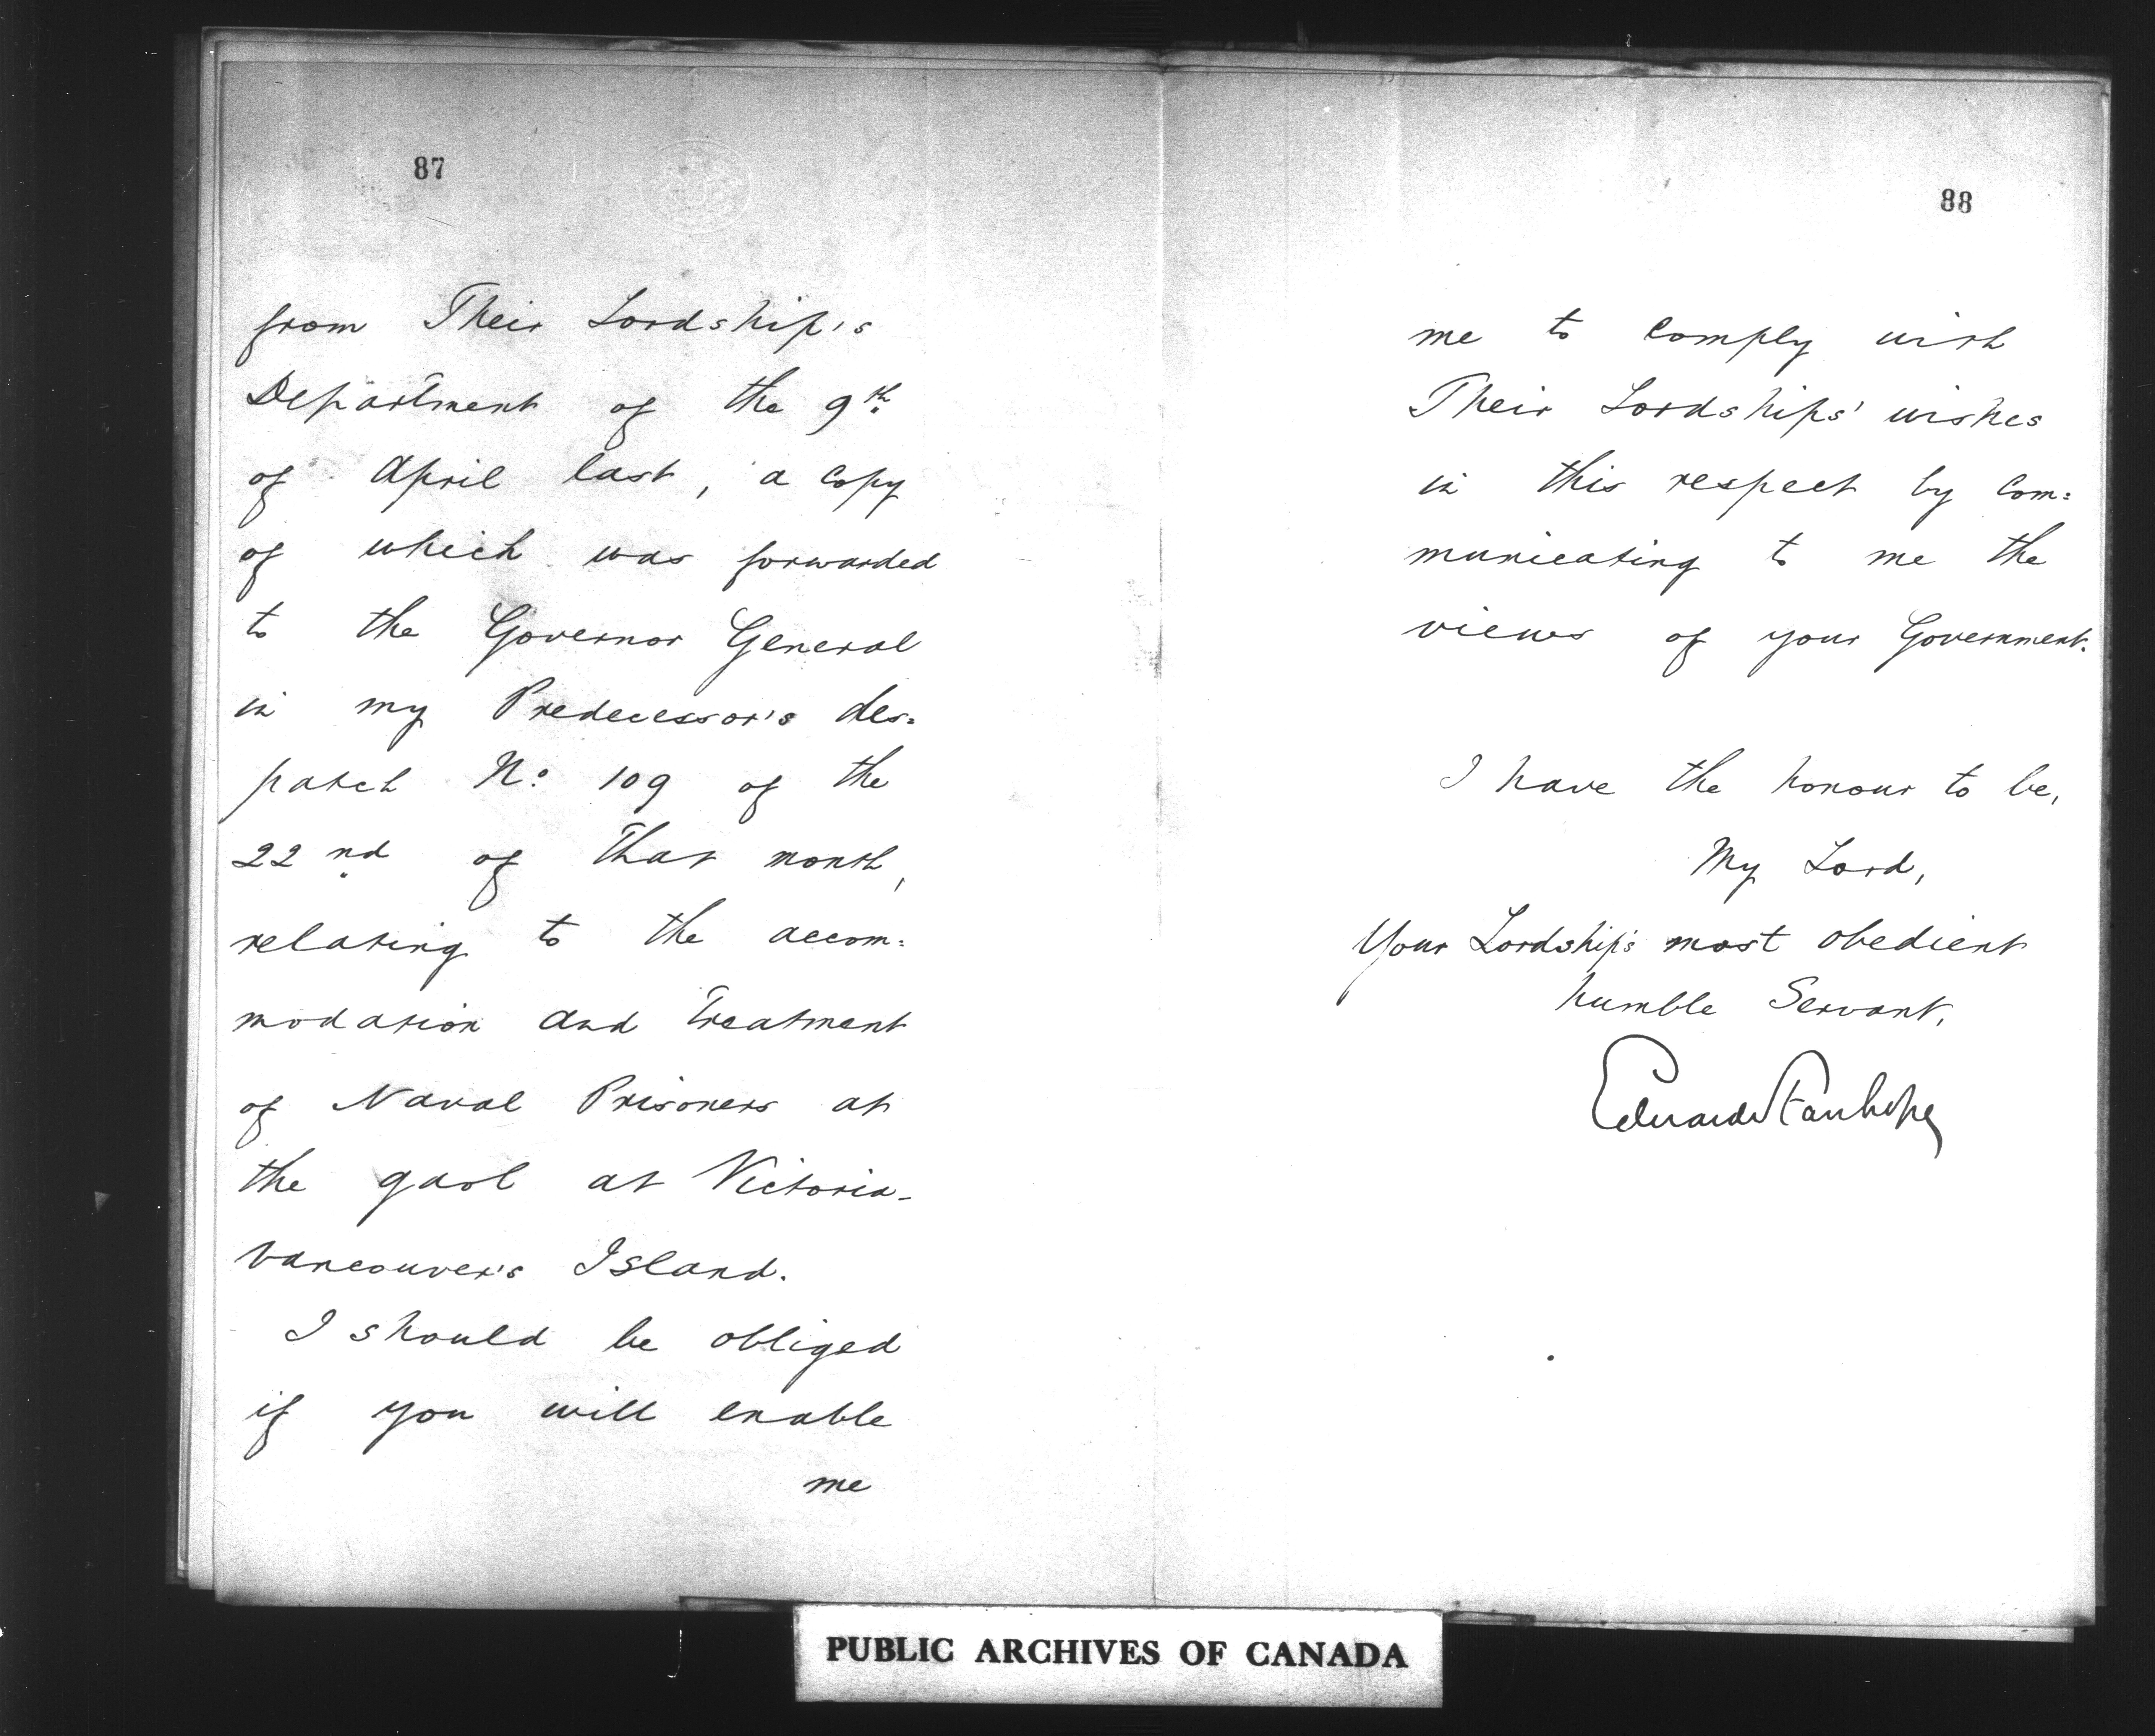 87
from Their Lordship's
Department of the 9th
of April last, a copy
of which was forwarded
to the Governor General
in my Predecessor's des=
patch No. 109 of the
22nd of that month,
relating to the accom=
modation and treatment
of Naval Prisoners at
the gaol at Victoria-
Vancouver's Island.
I should be obliged
if you will enable
me
88
me to comply with
Their Lordships' wishes
in this respect by com=
municating to me the
views of your Government.
I have the honour to be,
My Lord,
Your Lordship's most obedient
humble Servant,
Edward Stanhope
PUBLIC ARCHIVES OF CANADA